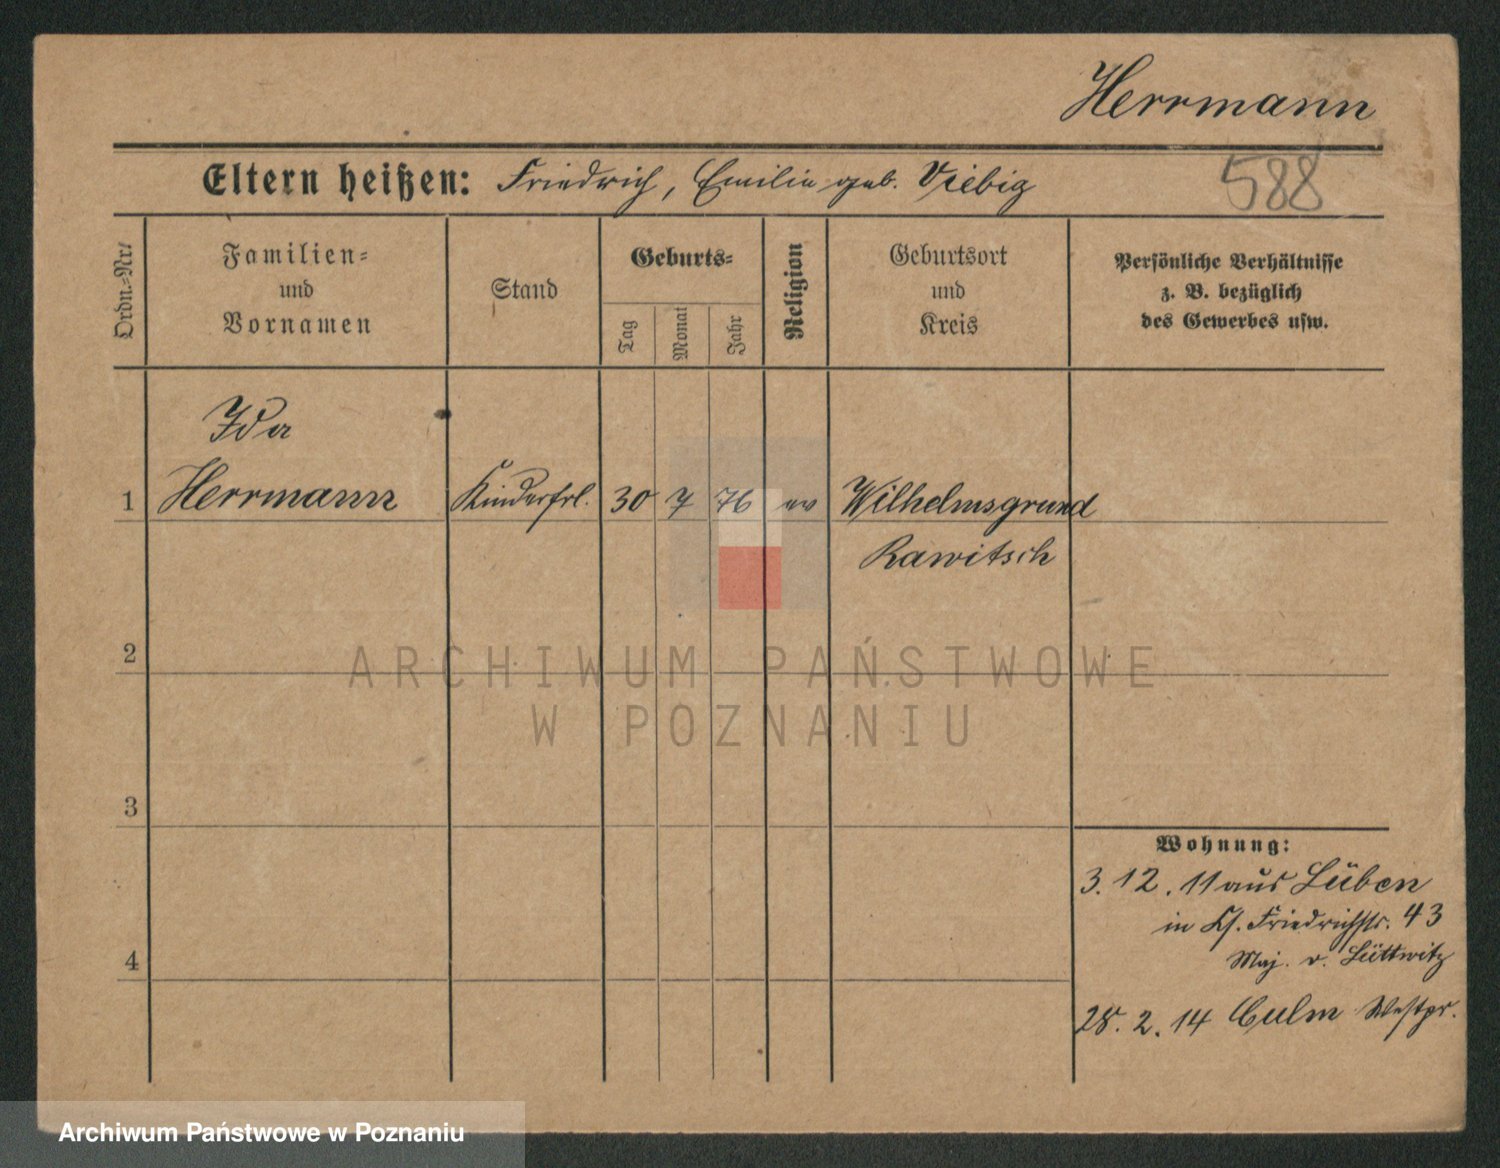 Herrmann
588
Eltern heißen: Friedrich, Emilie geb. Viebig
Ordn.-Nr.
Familien-
und
Vornamen
Stand
Geburts-
Tag
Monat
Jahr
Religion
Geburtsort
und
Kreis
Persönliche Verhältnisse
z. B. bezüglich
des Gewerbes usw.
Ida
1 Herrmann Kinderfrl. 30 7 76 ev Wilhelmsgrund
Rawitsch
2
ARCHIWUM PAŃSTWOWE
W POZNANIU
3
Wohnung:
3. 12. 11 aus Lüben
in Friedrichstr. 43
4
Maj. v. Lüttwitz
28. 2. 14 Culm Westpr.
Archiwum Państwowe w Poznaniu